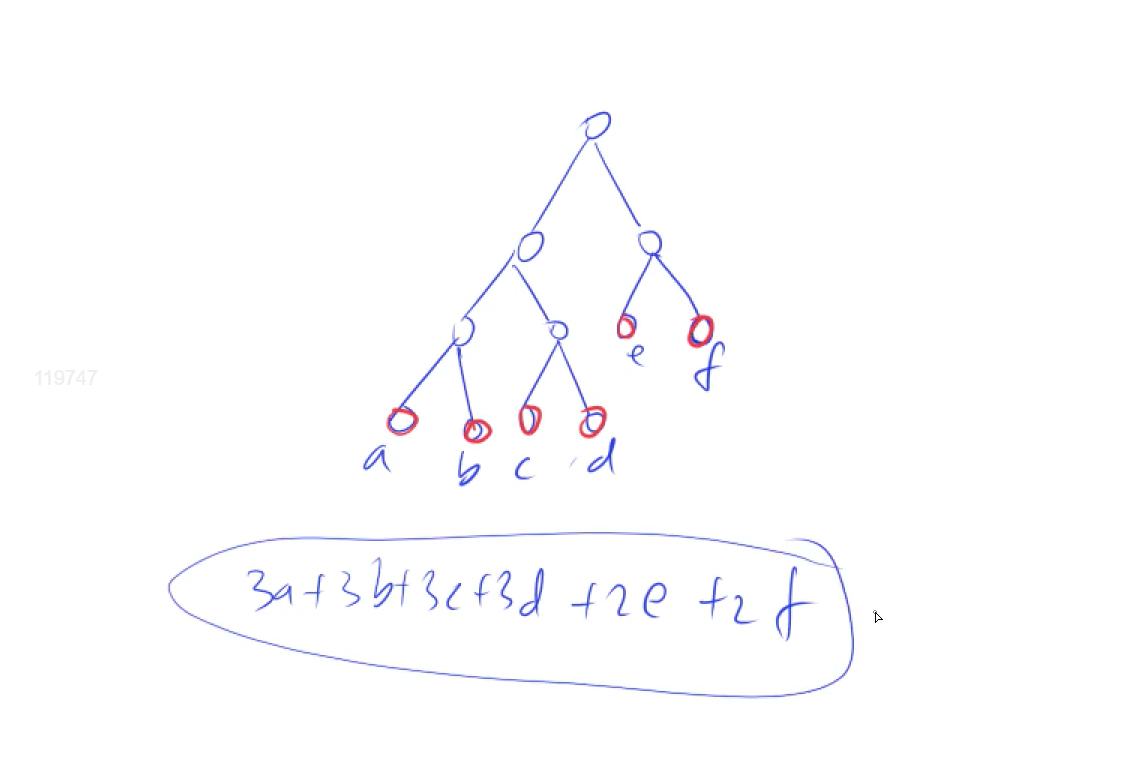 e f
119747
a b c d
3a+3b+3c+3d +2e +2f